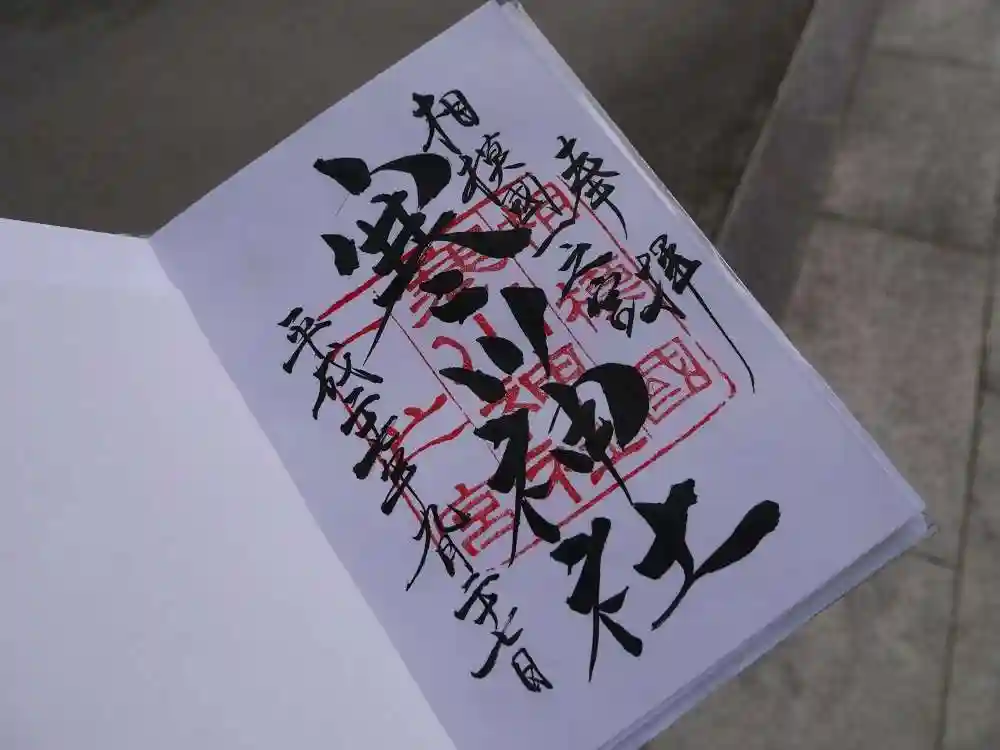 奉拝
相模國一之宮
寒川神社
平成二十七年九月二十七日
相模國
寒川神社
一之宮